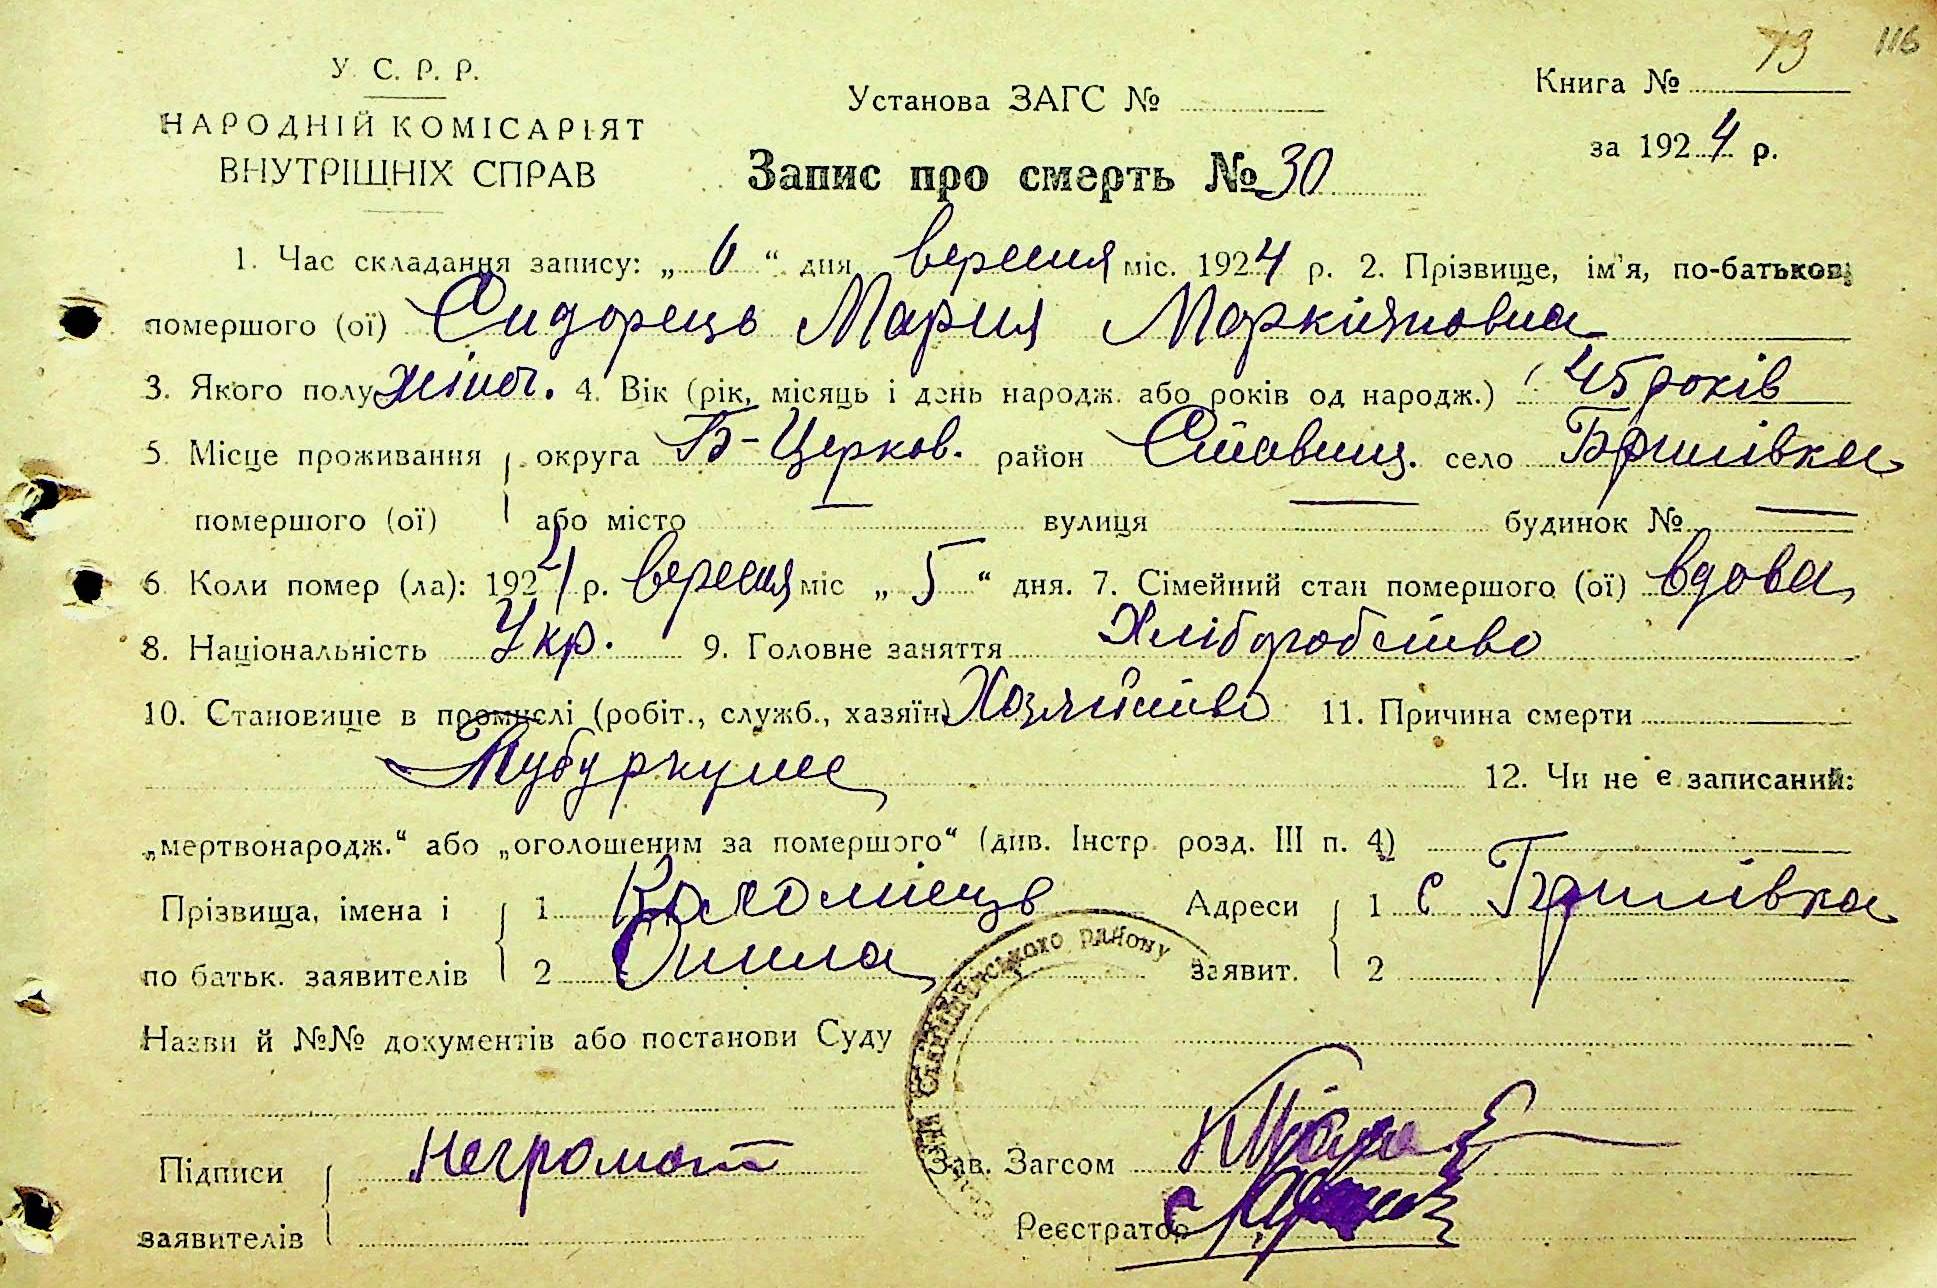 73 116
У. С. Р. Р.
НАРОДНІЙ КОМІСАРІЯТ
ВНУТРІШНІХ СПРАВ
Установа ЗАГС №
Книга №
за 1924 р.
Запис про смерть № 30
1. Час складання запису: „ 6 “ дня вересня міс. 1924 р. 2. Прізвище, ім'я, по-батькові
помершого (ої) Сидорець Мария Маркіяновна
3. Якого полу жіноч. 4. Вік (рік, місяць і день народж. або років од народж.) 45 років
5. Місце проживання округа Б-Церков. район Ставищ. село Бришівка
помершого (ої) або місто — вулиця — будинок № —
6. Коли помер (ла): 1924 р. вересня міс „ 5 “ дня. 7. Сімейний стан помершого (ої) вдова
8. Національність Укр. 9. Головне заняття Хліборобство
10. Становище в промислі (робіт., служб., хазяїн) Хозяйство 11. Причина смерти
Тубуркулес 12. Чи не є записаний:
„мертвонародж.“ або „оголошеним за помершого“ (див. Інстр. розд. III п. 4)
Прізвища, імена і 1 Коломієць Адреси 1 с Бришівка
по батьк. заявителів 2 заявит. 2
Ставищанського району
Назви й №№ документів або постанови Суду
Підписи неграмот Зав. Загсом
заявителів Реєстратор